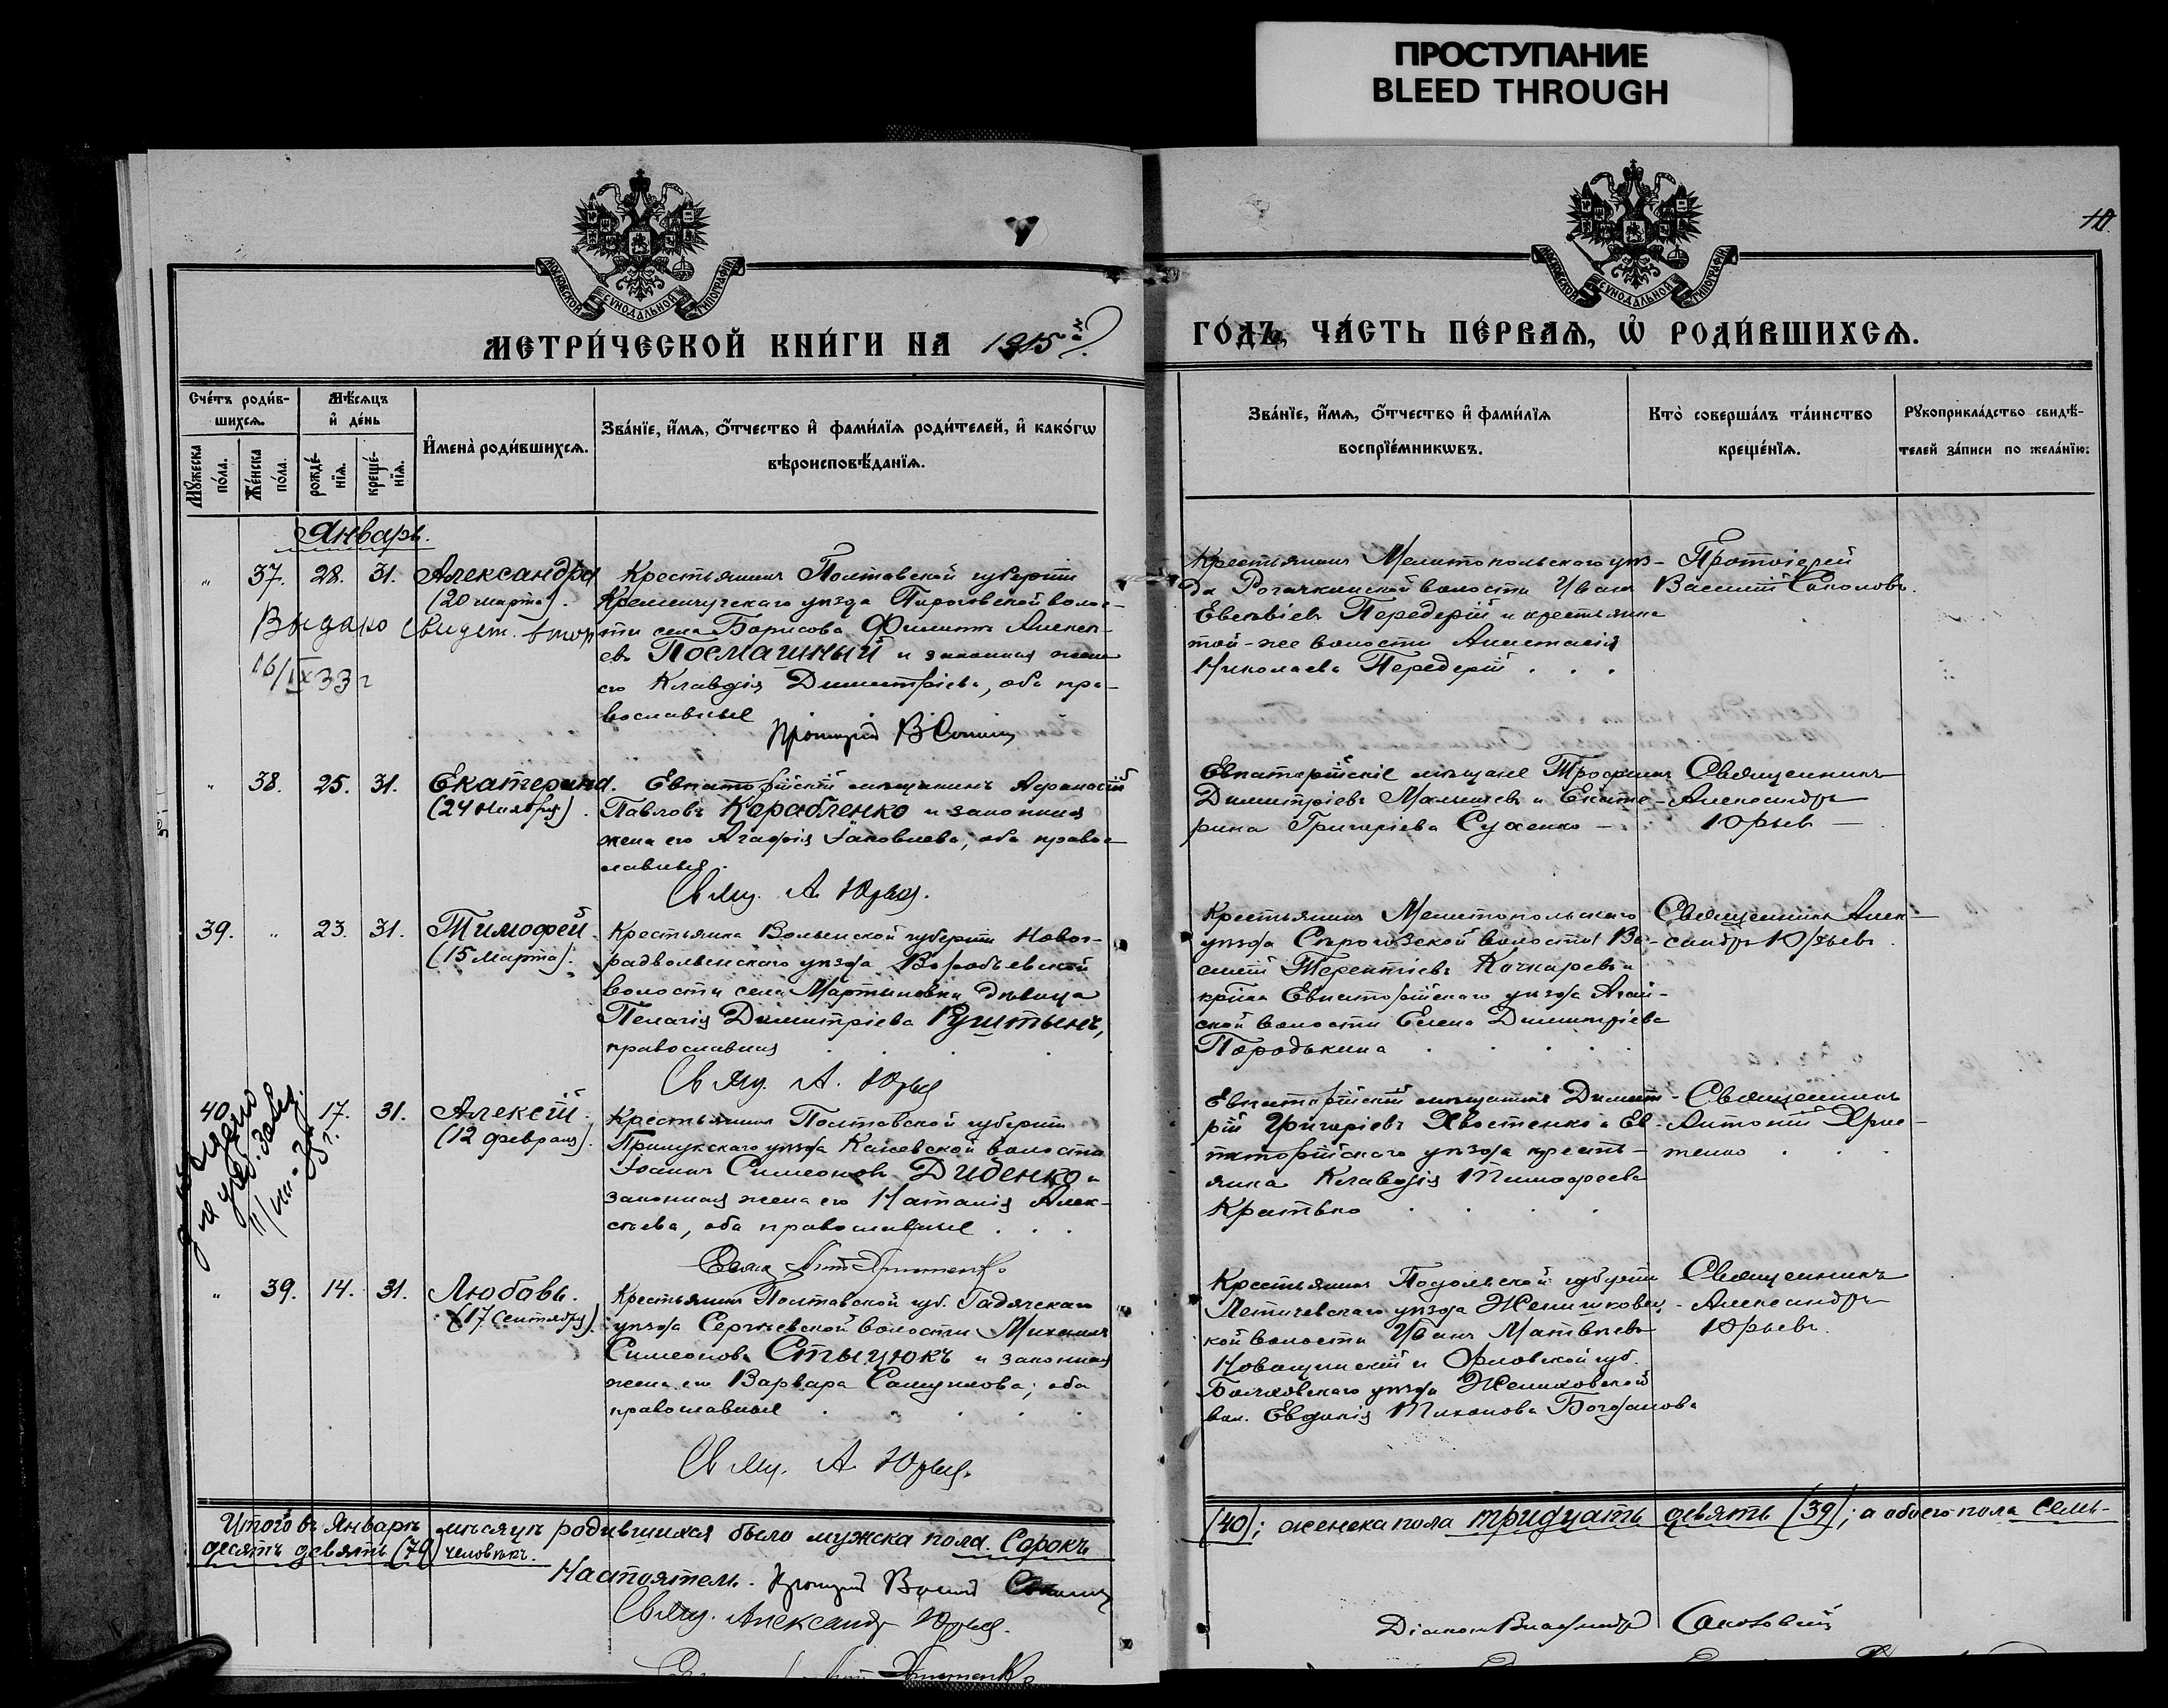 ПРОСТУПАНИЕ
BLEED THROUGH
МОСКОВСКОЙ СУНОДАЛЬНОЙ ТИПОГРАФІИ
МОСКОВСКОЙ СУНОДАЛЬНОЙ ТИПОГРАФІИ
МЕТРИ́ЧЕСКОЙ КНИ́ГИ НА 1915й
ГО́ДЪ, ЧА́СТЬ ПЕ́РВАѦ, Ѡ҆ РОДИ́ВШИХСѦ.
Сче́тъ роди́в-
шихсѧ.
Мѣ́сѧцъ
и҆ де́нь
Мꙋ́жеска по́ла.
Же́нска по́ла.
рожде́-
нїѧ.
креще́-
нїѧ.
И҆мена̀ роди́вшихсѧ.
Зва́нїе, и҆́мѧ, ѻ҆́тчество и҆ фами́лїѧ роди́телей, и҆ како́гѡ
вѣроисповѣ́данїѧ.
Зва́нїе, и҆́мѧ, ѻ҆́тчество и҆ фами́лїѧ
воспрїе́мникѡвъ.
Кто̀ соверша́лъ та́инство
креще́нїѧ.
Рꙋкоприкла́дство свидѣ́-
телей за́писи по жела́нїю:
Январь.
" 37. 28. 31. Александра
(20 марта).
Выдано свидет.
16/IX 33 г
Крестьянинъ Полтавской губерніи
Кременчугскаго уѣзда Пироговской волос-
ти села Борисова Филиппъ Алексѣ-
евъ Посмашный и законная жена
его Клавдія Димитріева, оба пра-
вославные
Крестьянинъ Мелитопольскаго уѣз-
да Рогачинской волости Иванъ
Евсевіевъ Передерій и крестьянка
той-же волости Анастасія
Николаева Передерій . . .
Протоіерей
Василій Соколовъ.
" 38. 25. 31. Екатерина.
(24 Ноября).
Евпаторійскій мѣщанинъ Аѳанасій
Павловъ Корабленко и законная
жена его Агафія Іаковлева, оба право-
славные.
Свящ. А. Юрьев.
Евпаторійскіе мѣщане Трофимъ
Димитріевъ Малышевъ и Екате-
рина Григоріева Сухенко —
Священникъ
Александръ
Юрьев —
39. " 23. 31. Тимофей.
(15 Марта).
Крестьянка Волынской губерніи Новог-
радволынскаго уѣзда Воробьевской
волости села Мартыновки дѣвица
Пелагія Димитріева Гуштынъ,
православная
Свящ. А. Юрьев
Крестьянинъ Мелитопольскаго
уѣзда Сѣрогозской волости Ва-
силій Терентіевъ Кочкаревъ и
кр-нка Евпаторійскаго уѣзда Агай-
ской волости Елена Димитріева
Породькина
Священникъ Алек-
сандръ Юрьевъ.
40 17. 31. Алексій.
(12 февраля).
Крестьянинъ Полтавской губерніи
Прилукскаго уѣзда волости
Іоаннъ Симеоновъ Диденко и
законная жена его Наталія Алек-
сѣева, оба православные . . .
Евпаторійскій мѣщанинъ Димит-
рій Григоріевъ Хвостенко и Ев-
паторійскаго уѣзда кресть-
янка Клавдія Тимофеева
Кратько
Священникъ
Антоній Хрис-
тенко
" 39. 14. 31. Любовь.
(17 Сентября).
Крестьянинъ Полтавской губ. Гадячскаго
уѣзда Сергѣевской волости Михаилъ
Симеоновъ Стыцюкъ и законная
жена его Варвара Самуилова; оба
православные
Свящ. А. Юрьев.
Крестьянинъ Подольской губерніи
Летичевскаго уѣзда Женишковец-
кой волости Иванъ Матвѣевъ
и Орловской губ.
Болховского уѣзда
вол. Евдокія Тихонова Богданова
Священникъ
Александръ
Юрьевъ.
Итого въ Январѣ мѣсяцѣ родившихся было мужска пола Сорокъ
(40); женска пола тридцать девять (39); а обоего пола семь-
десятъ девять (79) человѣкъ.
Настоятель
Свящ. Александр Юрьев.
Діаконъ Владимиръ